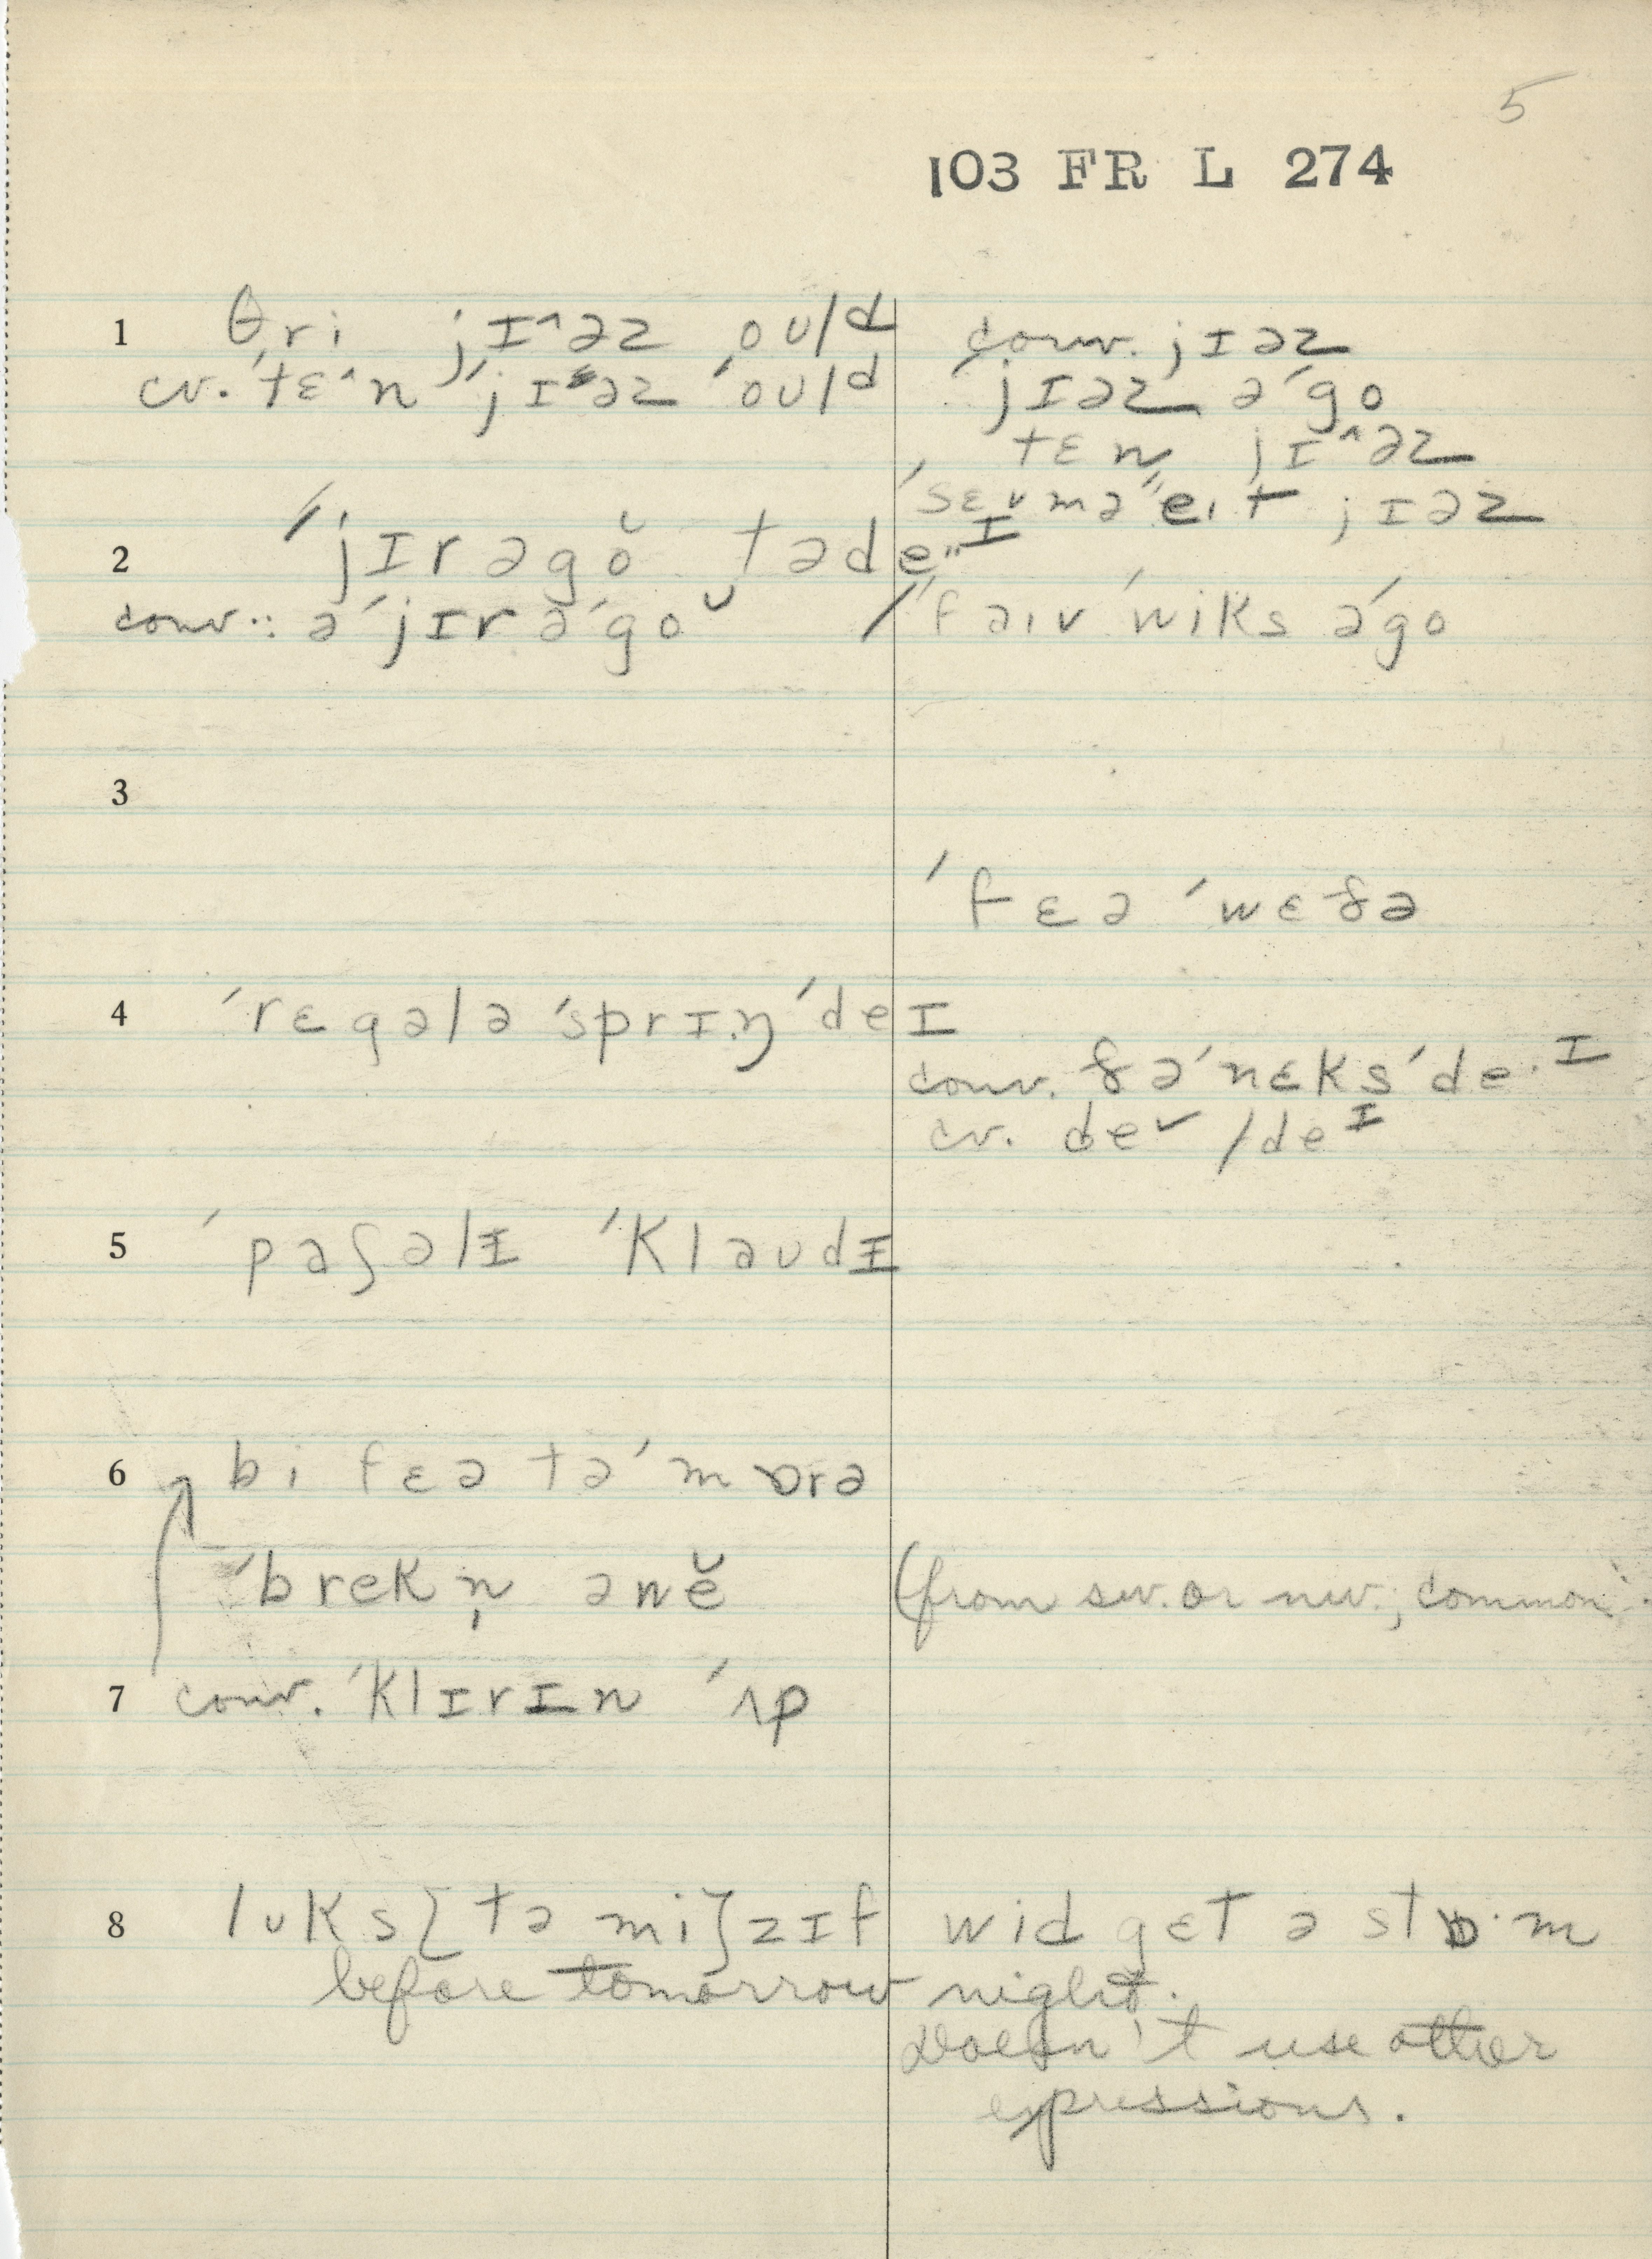 5
103 FR L 274
1 θri jɪ^əz oʊld conv. jɪəz
cv. 'tɛ^n 'jɪəz 'oʊld 'jɪəz ə'go
tɛn jɪ^əz
'sɛvmə"eɪt jɪəz
2 "jɪrəgŏ tədeɪ
conv.: ə'jɪrə'gŏ / 'faɪv 'wiks ə'go
3
'fɛə 'wɛðə
4 'rɛgələ 'sprɪŋ 'deɪ
conv. ðə'nɛks'deɪ
cv. deˇ / deɪ
5 'paʃəlɪ 'klaʊdɪ
6 bi fɛə tə'mɒrə
'brekn̩ əwĕ (from sw. or nw.; common.
7 conv. 'klɪrɪn 'ʌp
8 lʊks[tə mi]zɪf wid gɛt ə stɒ·m
before tomorrow night.
Doesn't use other
expressions.